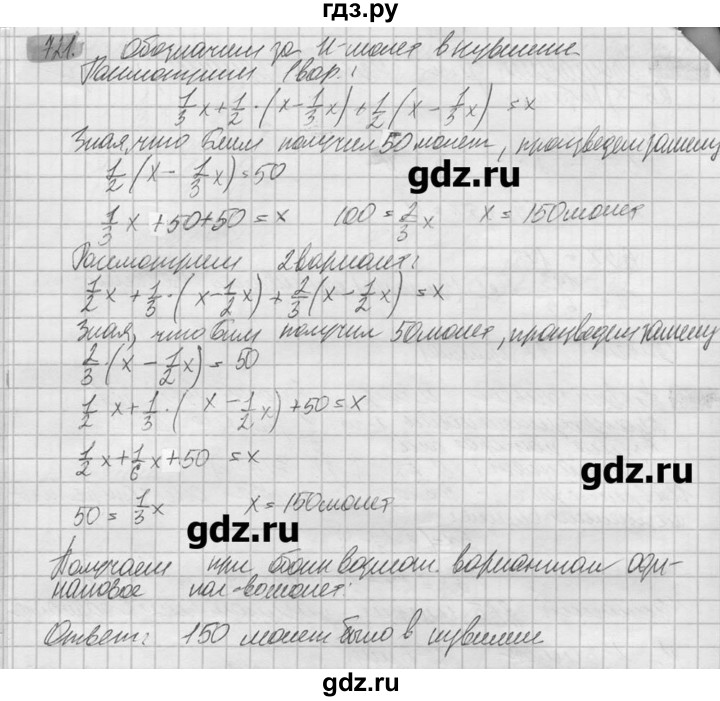 гдз.ру
721. Обозначим за х-монет в кувшине
Рассмотрим 1 вар.:
1/3 x + 1/2 · (x - 1/3 x) + 1/2 (x - 1/3 x) = x
Зная, что Бим получил 50 монет, произведем замену
1/2 (x - 1/3 x) = 50
gdz.ru
1/3 x + 50 + 50 = x 100 = 2/3 x x = 150 монет
Рассмотрим 2 вариант:
1/2 x + 1/3 · (x - 1/2 x) + 2/3 (x - 1/2 x) = x
Зная, что Бим получил 50 монет, произведем замену
2/3 · (x - 1/2 x) = 50
1/2 x + 1/3 · (x - 1/2 x) + 50 = x
1/2 x + 1/6 x + 50 = x
gdz.ru
50 = 1/3 x x = 150 монет
gdz.ru
Получаем при обоих возмож. вариантах оди-
наковое кол-во монет.
Ответ: 150 монет было в кувшине
gdz.ru